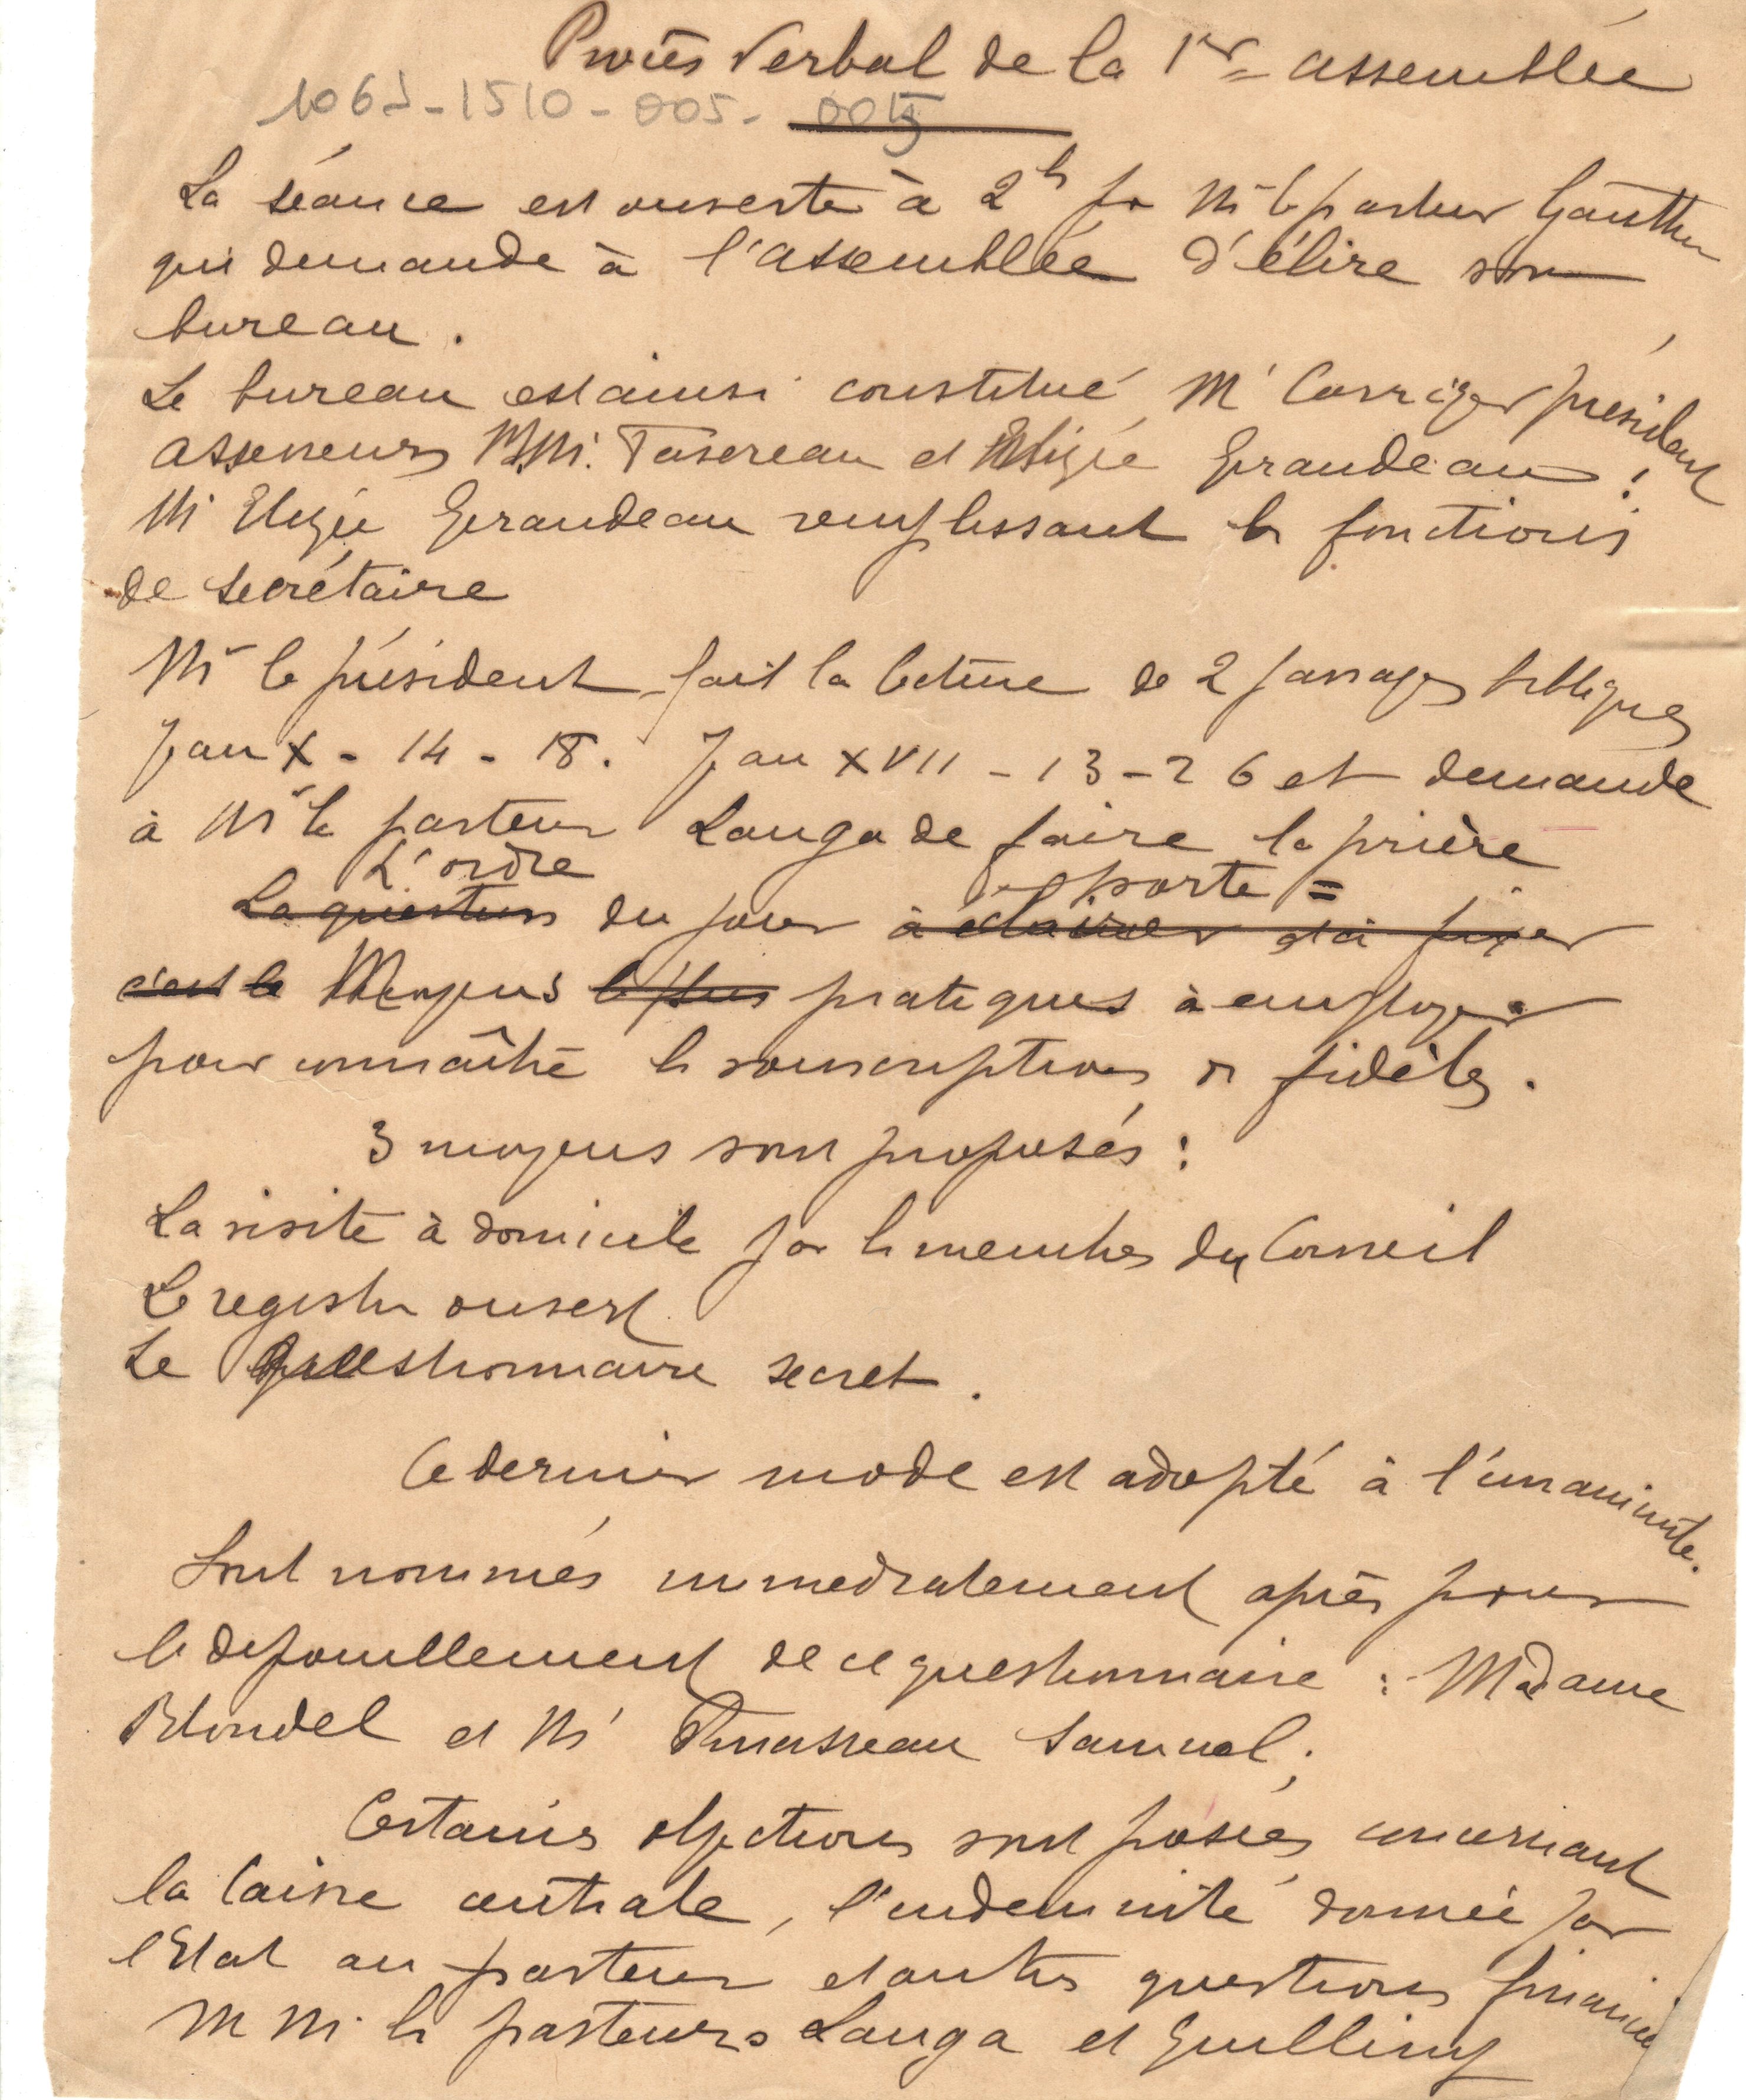 Procès Verbal de la 1re assemblée
1061-1510-005-
La séance est ouverte à 2h par Mr le pasteur Gauthier
qui demande à l'assemblée d'élire son
bureau.
Le bureau est ainsi constitué Mr président
assesseurs MM. et Elisée Grandeau;
Mr Elisée Grandeau remplissant les fonctions
de secrétaire
Mr le président fait la lecture de 2 passages bibliques
Jean X - 14 - 18. Jean XVII - 13 - 26 et demande
à Mr le pasteur Lauga de faire la prière
L'ordre porte =
La question du jour à éclairer et à fixer
c'est le Moyens le plus pratiques à employer
pour connaître les souscriptions des fidèles.
3 moyens sont proposés :
La visite à domicile par les membres du Conseil
Le registre ouvert
Le Questionnaire secret.
Ce dernier mode est adopté à l'unanimité.
Sont nommés immédiatement après pour
le dépouillement de ce questionnaire : Madame
Blondel et Mr Samuel;
Certaines objections sont posées concernant
la Caisse centrale, l'indemnité donnée par
l'Etat au pasteur et autres questions
MM. les pasteurs Lauga et